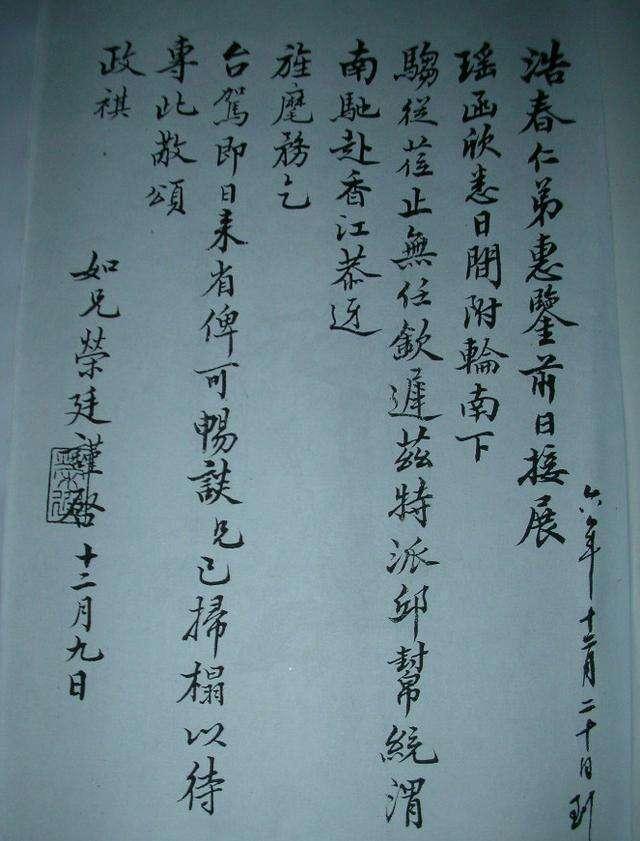 六年十二月二十日到
浩春仁弟惠鑒前日接展
瑶函欣悉日間附輪南下
騶從莅止無任欽遲茲特派邱幫統渭
南馳赴香江恭迓
旌麾務乞
台駕即日来省俾可暢談兄已掃榻以待
專此敬頌
政祺
如兄榮廷謹啓十二月九日